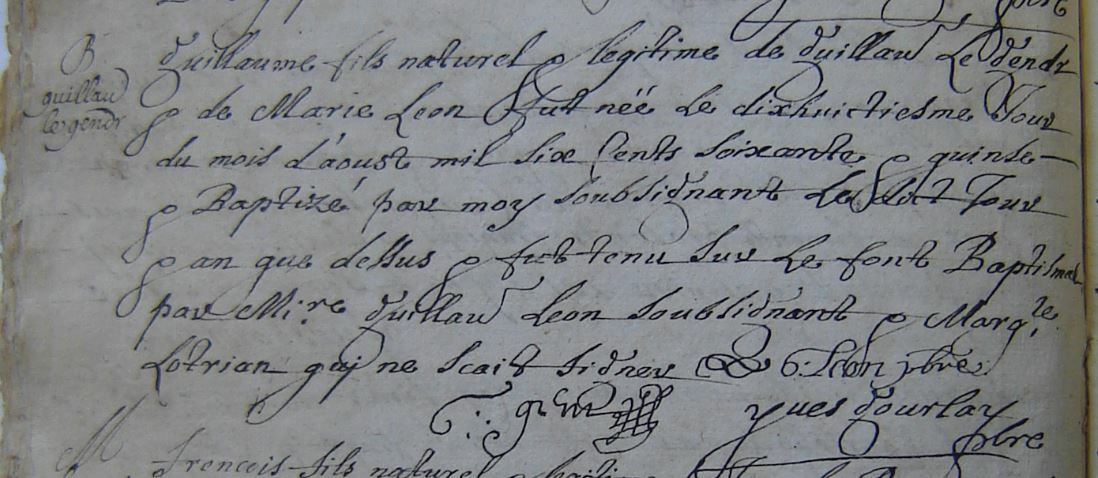 B
guillau
legendr
Guillaume fils naturel & legitime de Guillau Le Gendr
& de Marie Leon fut néé Le dixhuictiesme Jour
du mois d'aoust mil six Cents soixante & quinse
& Baptizé par moy soubsignant Le dict Jour
& an que dessus & fut tenu sur Le font Baptismal
par Mi.re Guillau Leon soubsignant & Marg.te
Lotrian qui ne scait signer G: Leon pbre
yves gourlay
pbre
Francois fils naturel